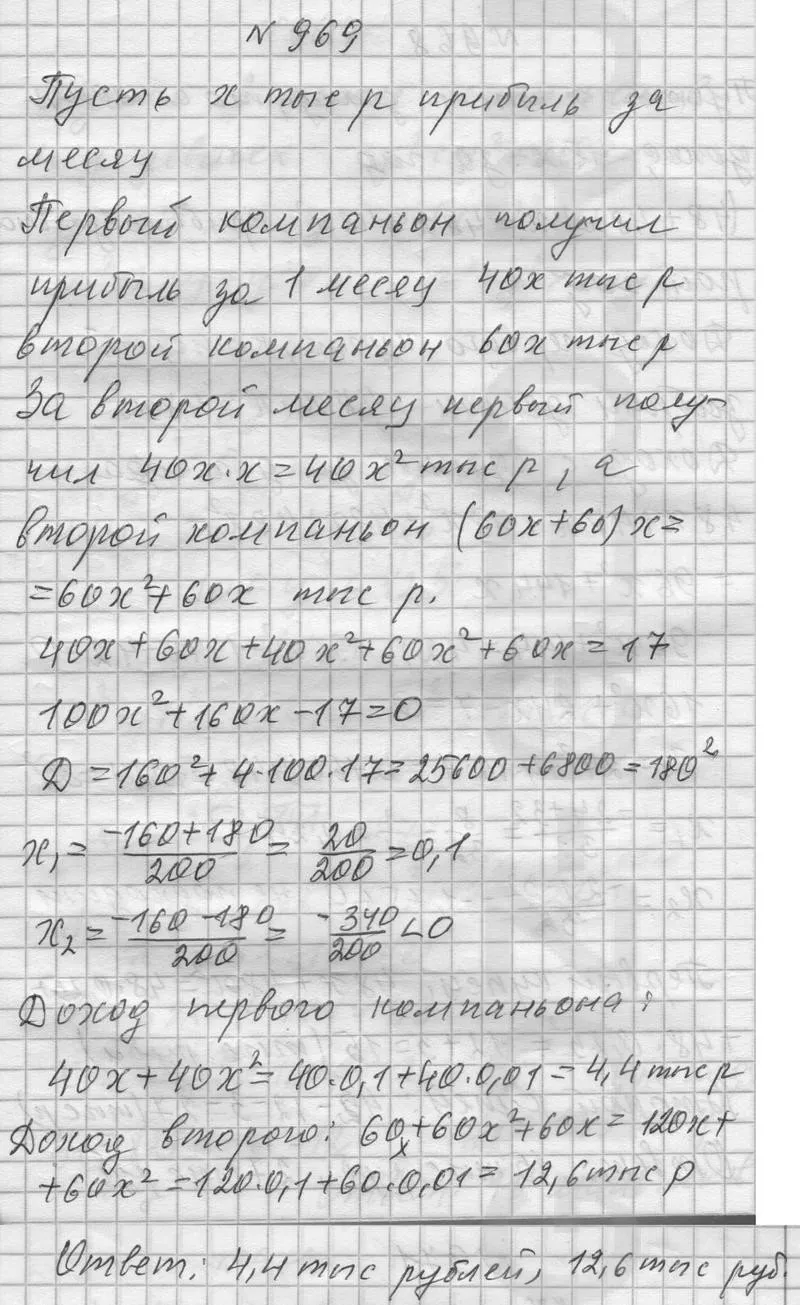 № 969
Пусть x тыс р прибыль за
месяц
Первый компаньон получил
прибыль за 1 месяц 40x тыс р
второй компаньон 60x тыс р
За второй месяц первый полу-
чил 40x·x=40x² тыс р, а
второй компаньон (60x+60)x=
=60x²+60x тыс р.
40x+60x+40x²+60x²+60x=17
100x²+160x-17=0
Д=160²+4·100·17=25600+6800=180²
x₁= (-160+180)/200 = 20/200 =0,1
x₂= (-160-180)/200 = -340/200 <0
Доход первого компаньона:
40x+40x²=40·0,1+40·0,01=4,4 тыс р
Доход второго: 60x+60x²+60x=120x+
+60x²=120·0,1+60·0,01=12,6 тыс р
Ответ: 4,4 тыс рублей, 12,6 тыс руб.